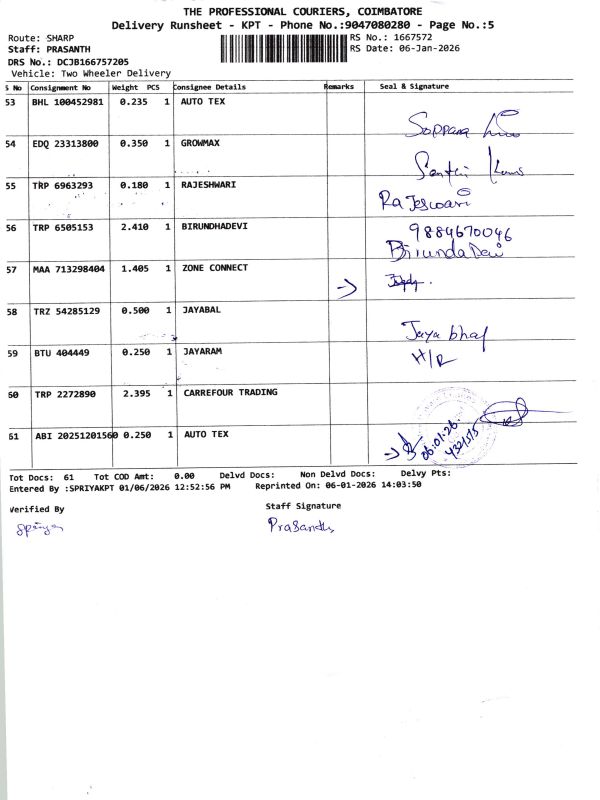 THE PROFESSIONAL COURIERS, COIMBATORE
Delivery Runsheet - KPT - Phone No.:9047080280 - Page No.:5
Route: SHARP
RS No.: 1667572
Staff: PRASANTH
RS Date: 06-Jan-2026
DRS No.: DCJB166757205
Vehicle: Two Wheeler Delivery
S No Consignment No Weight PCS Consignee Details Remarks Seal & Signature
53 BHL 100452981 0.235 1 AUTO TEX
54 EDQ 23313800 0.350 1 GROWMAX
55 TRP 6963293 0.180 1 RAJESHWARI Rajeswari
56 TRP 6505153 2.410 1 BIRUNDHADEVI 9884670046
Birunda Devi
57 MAA 713298404 1.405 1 ZONE CONNECT
58 TRZ 54285129 0.500 1 JAYABAL Jaya bhal
59 BTU 404449 0.250 1 JAYARAM H/R
60 TRP 2272890 2.395 1 CARREFOUR TRADING
61 ABI 20251201560 0.250 1 AUTO TEX 06.01.26
Tot Docs: 61 Tot COD Amt: 0.00 Delvd Docs: Non Delvd Docs: Delvy Pts:
Entered By :SPRIYAKPT 01/06/2026 12:52:56 PM Reprinted On: 06-01-2026 14:03:50
Verified By
Staff Signature
Prasanth